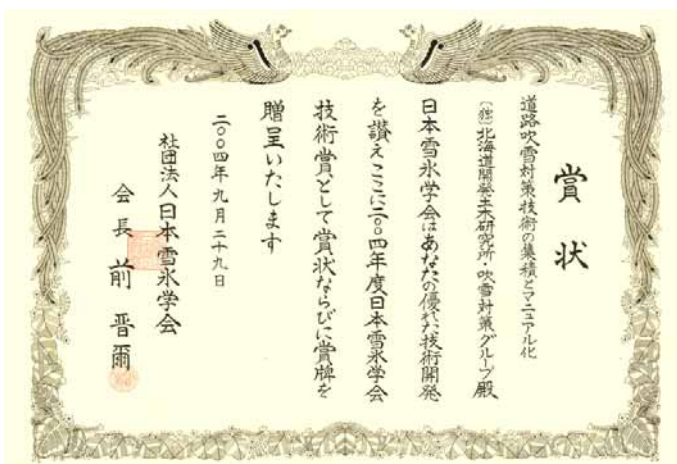 賞状
道路吹雪対策技術の集積とマニュアル化
(独)北海道開発土木研究所・吹雪対策グループ殿
日本雪氷学会はあなたの優れた技術開発
を讃えここに二〇〇四年度日本雪氷学会
技術賞として賞状ならびに賞牌を
贈呈いたします
二〇〇四年九月二十九日
社団法人日本雪氷学会
会長 前晋爾